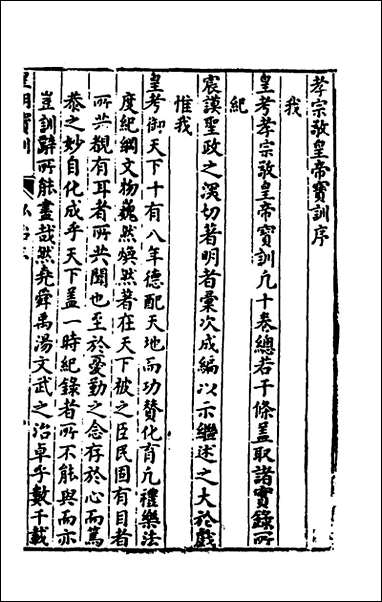 孝宗敬皇帝寶訓序
我
皇考孝宗敬皇帝寶訓凡十卷總若干條蓋取諸實錄所
紀
宸謨聖政之深切著明者彙次成編以示繼述之大於戲
惟我
皇考御天下十有八年德配天地而功贊化育凡禮樂法
度紀綱文物巍然煥然著在天下被之臣民固有目者
所共覩有耳者所共聞也至於憂勤之念存於心而篤
恭之妙自化成乎天下蓋一時紀錄者所不能與而亦
豈訓辭所能盡哉然堯舜禹湯文武之治卓乎數千載
皇明寶訓